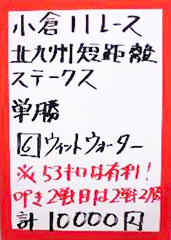 小倉11レース
北九州短距離
ステークス
単勝
⑥ウィントウォーター
※53キロは有利！
叩き2戦目は2戦2勝
計10000円